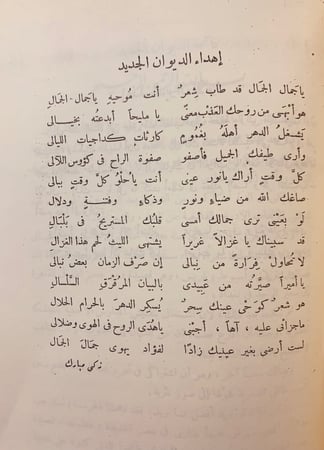 إهداء الديوان الجديد
يا جمال الجمال قد طاب شعرٌ أنت مُوحيه يا جمال الجمال
هو أبْهَى من روحك العذْب معنًى يا مليحاً أبدعتُه بخيالي
يشغلُ الدهر أهلَهُ بغُمومٍ كارثاتٍ كداجيات الليالي
وأرى طيفك الجميل فأصفو صفوة الراح في كؤوس اللآلي
كلَّ وقتٍ أراك يا نور عيني أنت يا حُلوُ كلَّ وقتٍ ببالي
صاغك الله من ضياءٍ ونورٍ وذكاءٍ وفتنةٍ ودلالِ
لَوْ بعَيْني ترى جمالك أمسى قلبُك المستريحُ في بَلْبَالِ
قد سبيناك يا غزالاً غريراً يشتهى الليثُ لحم هذا الغزالِ
لا تحاول فِرارَةً من نِبالي إن صَرْف الزمان بعضُ نبالي
يا أميراً صيَّرتُه من عَبيدى بالبيان المُرقرَق السَّلْسالِ
هو شعرٌ كوَحْى عينك سِحرٌ يُسكِر الدهرَ بالحرام الحلال
ما جزائى عليه، آهاً، أجبْنى يا هُدَى الروح في الهوى وضلالى
لست أرضى بغير عينيك زادًا لفؤاد يهوى جمالَ الجمالِ
زكى مبارك